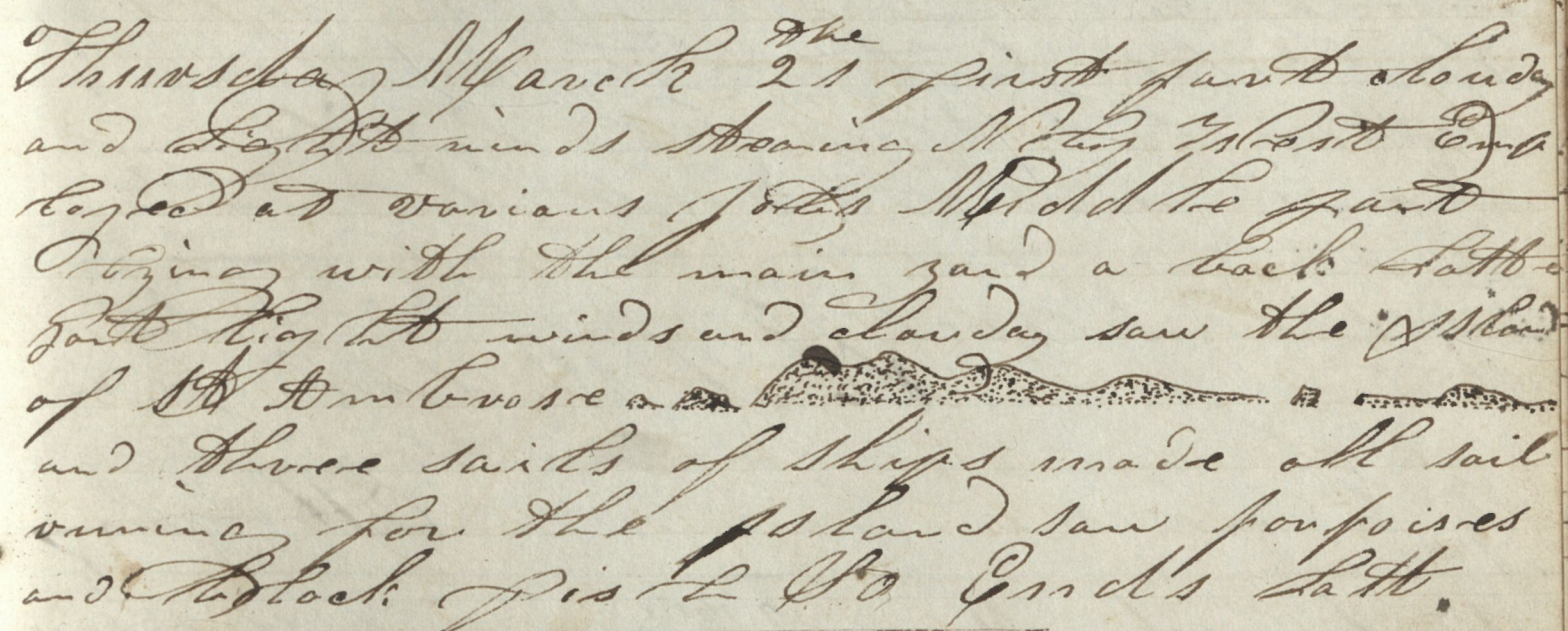 Thursday March the 21 first part cloudy
and light winds stearing N by West Emp
loyed at various jobs Middle part
lying with the main yard a back Latte
part light winds and clouday saw the Island
of St Ambrose
and three sails of ships made all sail
runing for the Island saw porpoises
and black fish So Ends Latt.